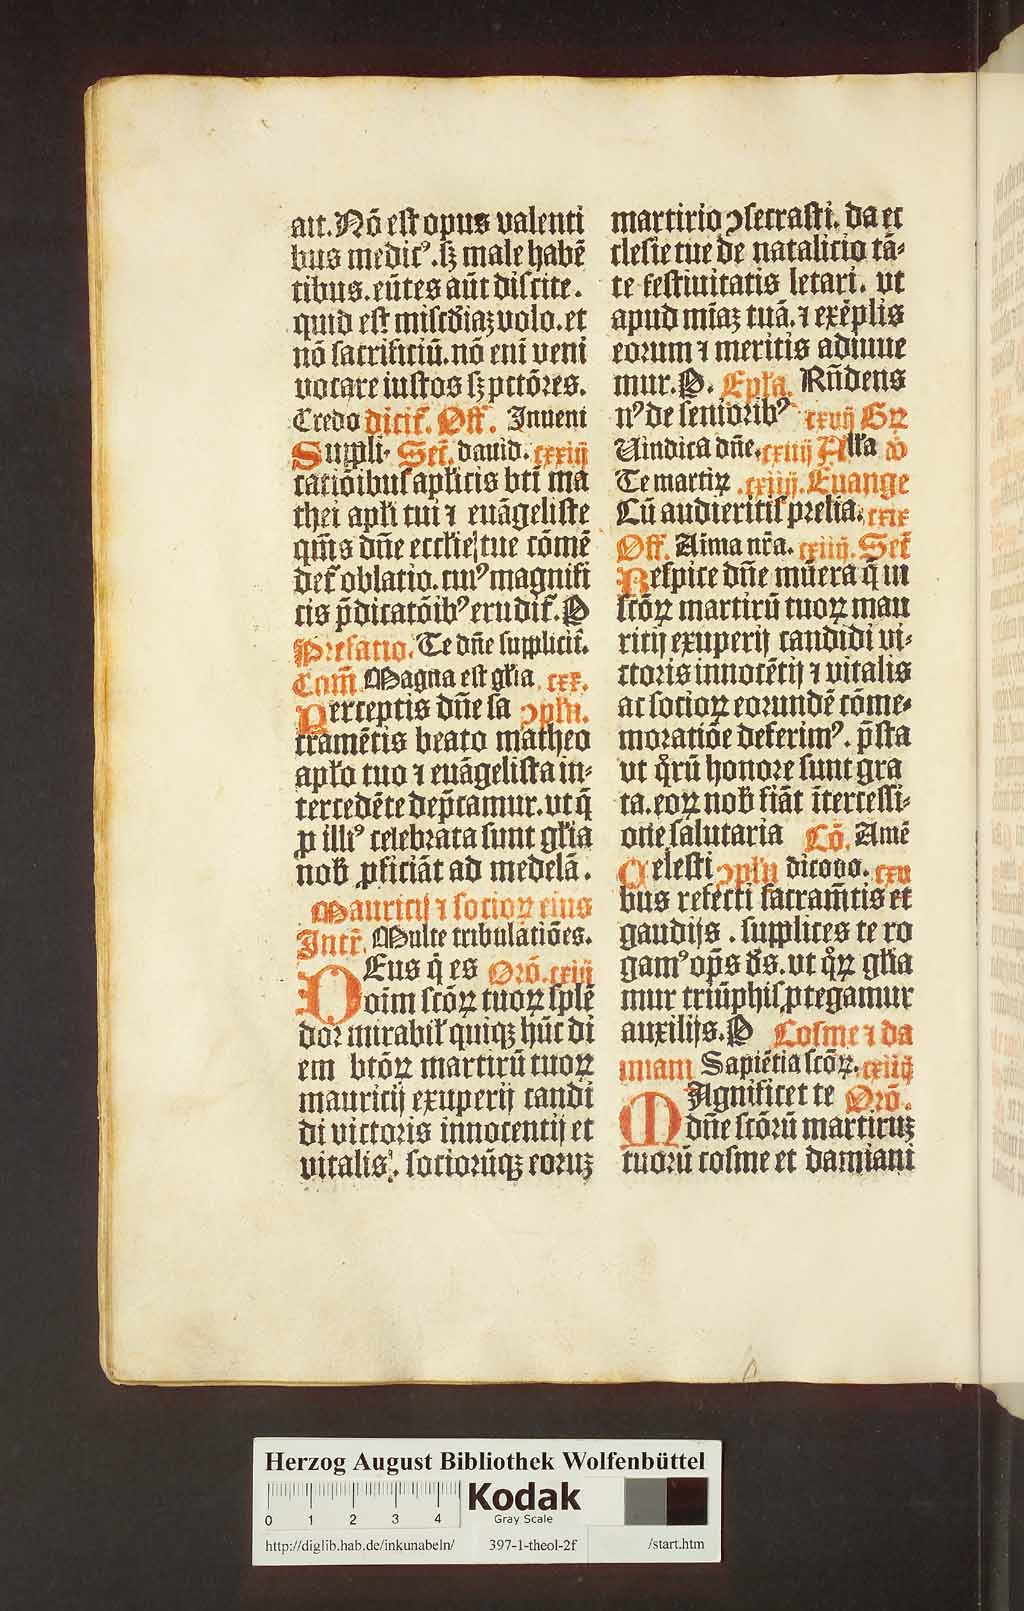 ait. Nō est opus valenti
bus medicꝰ. sꝫ male habē
tibus. eūtes aūt discite.
quid est misc̄diaꝫ volo. et
nō sacrificiū. nō eni veni
vocare iustos sꝫ pctōres.
Credo dicit̄. Off̄. Inueni
Suppli- Sec̄. dauid. cxxiij
catiōibus aplicis bt̄i ma
thei apl̓i tui ⁊ euāgeliste
qm̄s dn̄e eccl̓ie tue cōmē
det̄ oblatio. cuiꝰ magnifi
cis p̄dicatōibꝰ erudit̄. P
Prefatio. Te dn̄e supplicit̄.
Com̄. Magna est gl̓ia. cxx.
Perceptis dn̄e sa ↄpl̓n.
cramētis beato matheo
apl̓o tuo ⁊ euāgelista in-
tercedēte dep̄camur. vt q̄
ꝓ illiꝰ celebrata sunt gl̓ia
nob̄ ꝓficiāt ad medelā.
Mauricij ⁊ socioꝝ eius
Intr̄. Multe tribulatiōes.
DEus q̇ es Orō. cxiij
oīm scōꝝ tuoꝝ splē
dor mirabil̓ quiqꝫ hūc di
em btōꝝ martirū tuoꝝ
mauricij exuperij candi
di victoris innocentij et
vitalis. sociorūqꝫ eoruꝫ
martirio ↄsecrasti. da ec
clesie tue de natalicio tā-
te festiuitatis letari. vt
apud mīaꝫ tuā. ⁊ exēplis
eorum ⁊ meritis adiuue
mur. P. Epl̓a. Rn̄dens
nꝰ de senioribꝰ cxvij Gr
Uindica dn̄e. cxiiij All̓a v̄
Te martiꝝ. cxiiij. Euange
Cū audieritis prelia. cxix
Off̄. Aīma nr̄a. cxiiij. Sec̄
Respice dn̄e mūera q̄ in
scōꝝ martirū tuoꝝ mau
ricij exuperij candidi vi-
ctoris innocētij ⁊ vitalis
ac socioꝝ eorundē cōme-
moratiōe deferimꝰ. p̄sta
vt q̇rū honore sunt gra
ta. eoꝝ nob̄ fiāt ītercessi-
one salutaria Cō. Amē
Celesti ↄpl̓n dico vo. cxv
bus refecti sacram̄tis et
gaudijs. supplices te ro
gamꝰ op̄s d̄s. vt q̇ꝝ gl̓ia
mur triūphis ꝓtegamur
auxilijs. P Cosme ⁊ da
miani Sapiētia scōꝝ. cxiiij
MAgnificet te Orō.
dn̄e scōrū martiruꝫ
tuorū cosme et damiani
Herzog August Bibliothek Wolfenbüttel
0 1 2 3 4
Kodak
Gray Scale
http://diglib.hab.de/inkunabeln/ 397-1-theol-2f /start.htm